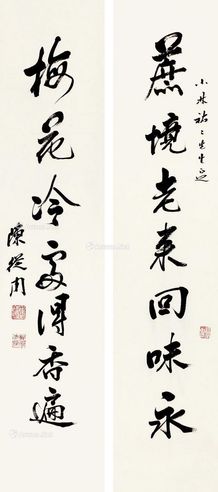 小林祐之先生正
蔗境老来回味永
梅花冷处得香遍
陳從周